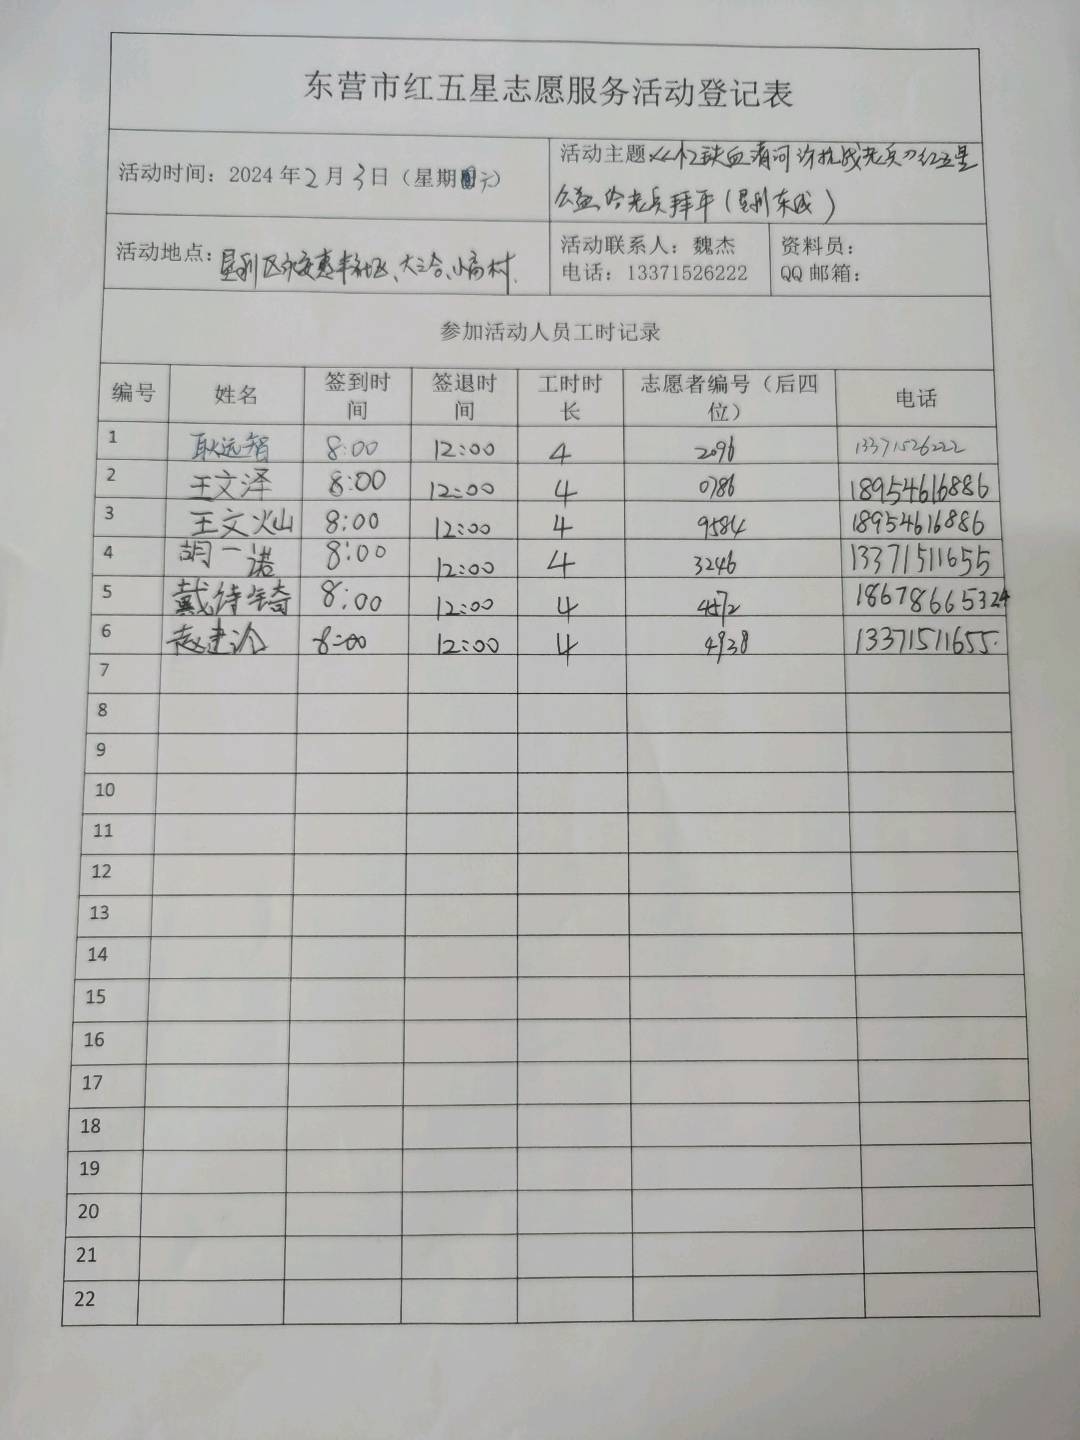 东营市红五星志愿服务活动登记表
活动时间：2024年2月3日（星期六）
活动主题《忆铁血清河 访抗战老兵》红五星
公益给老兵拜年（垦利东城）
活动地点：垦利区永安惠丰社区、大三合、小高村.
活动联系人：魏杰
电话：13371526222
资料员：
QQ邮箱：
参加活动人员工时记录
编号 姓名 签到时间 签退时间 工时时长 志愿者编号（后四位） 电话
1 耿远智 8:00 12:00 4 2096 13371526222
2 王文泽 8:00 12:00 4 0786 18954616886
3 王文灿 8:00 12:00 4 9584 18954616886
4 胡一诺 8:00 12:00 4 3246 13371511655
5 戴 8:00 12:00 4 4572 18678665324
6 赵建 8:00 12:00 4 4938 13371511655.
7
8
9
10
11
12
13
14
15
16
17
18
19
20
21
22